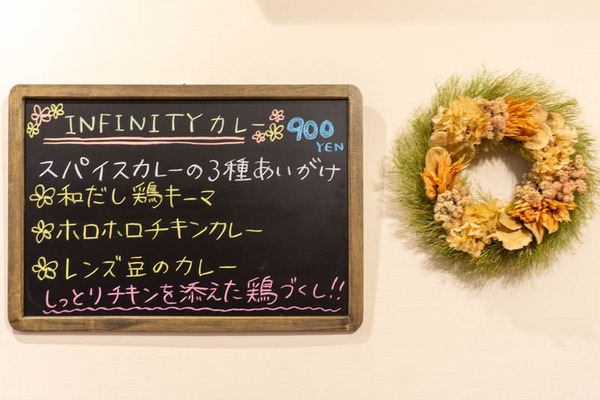 INFINITYカレー 900 YEN
スパイスカレーの3種あいがけ
和だし鶏キーマ
ホロホロチキンカレー
レンズ豆のカレー
しっとりチキンを添えた鶏づくし!!